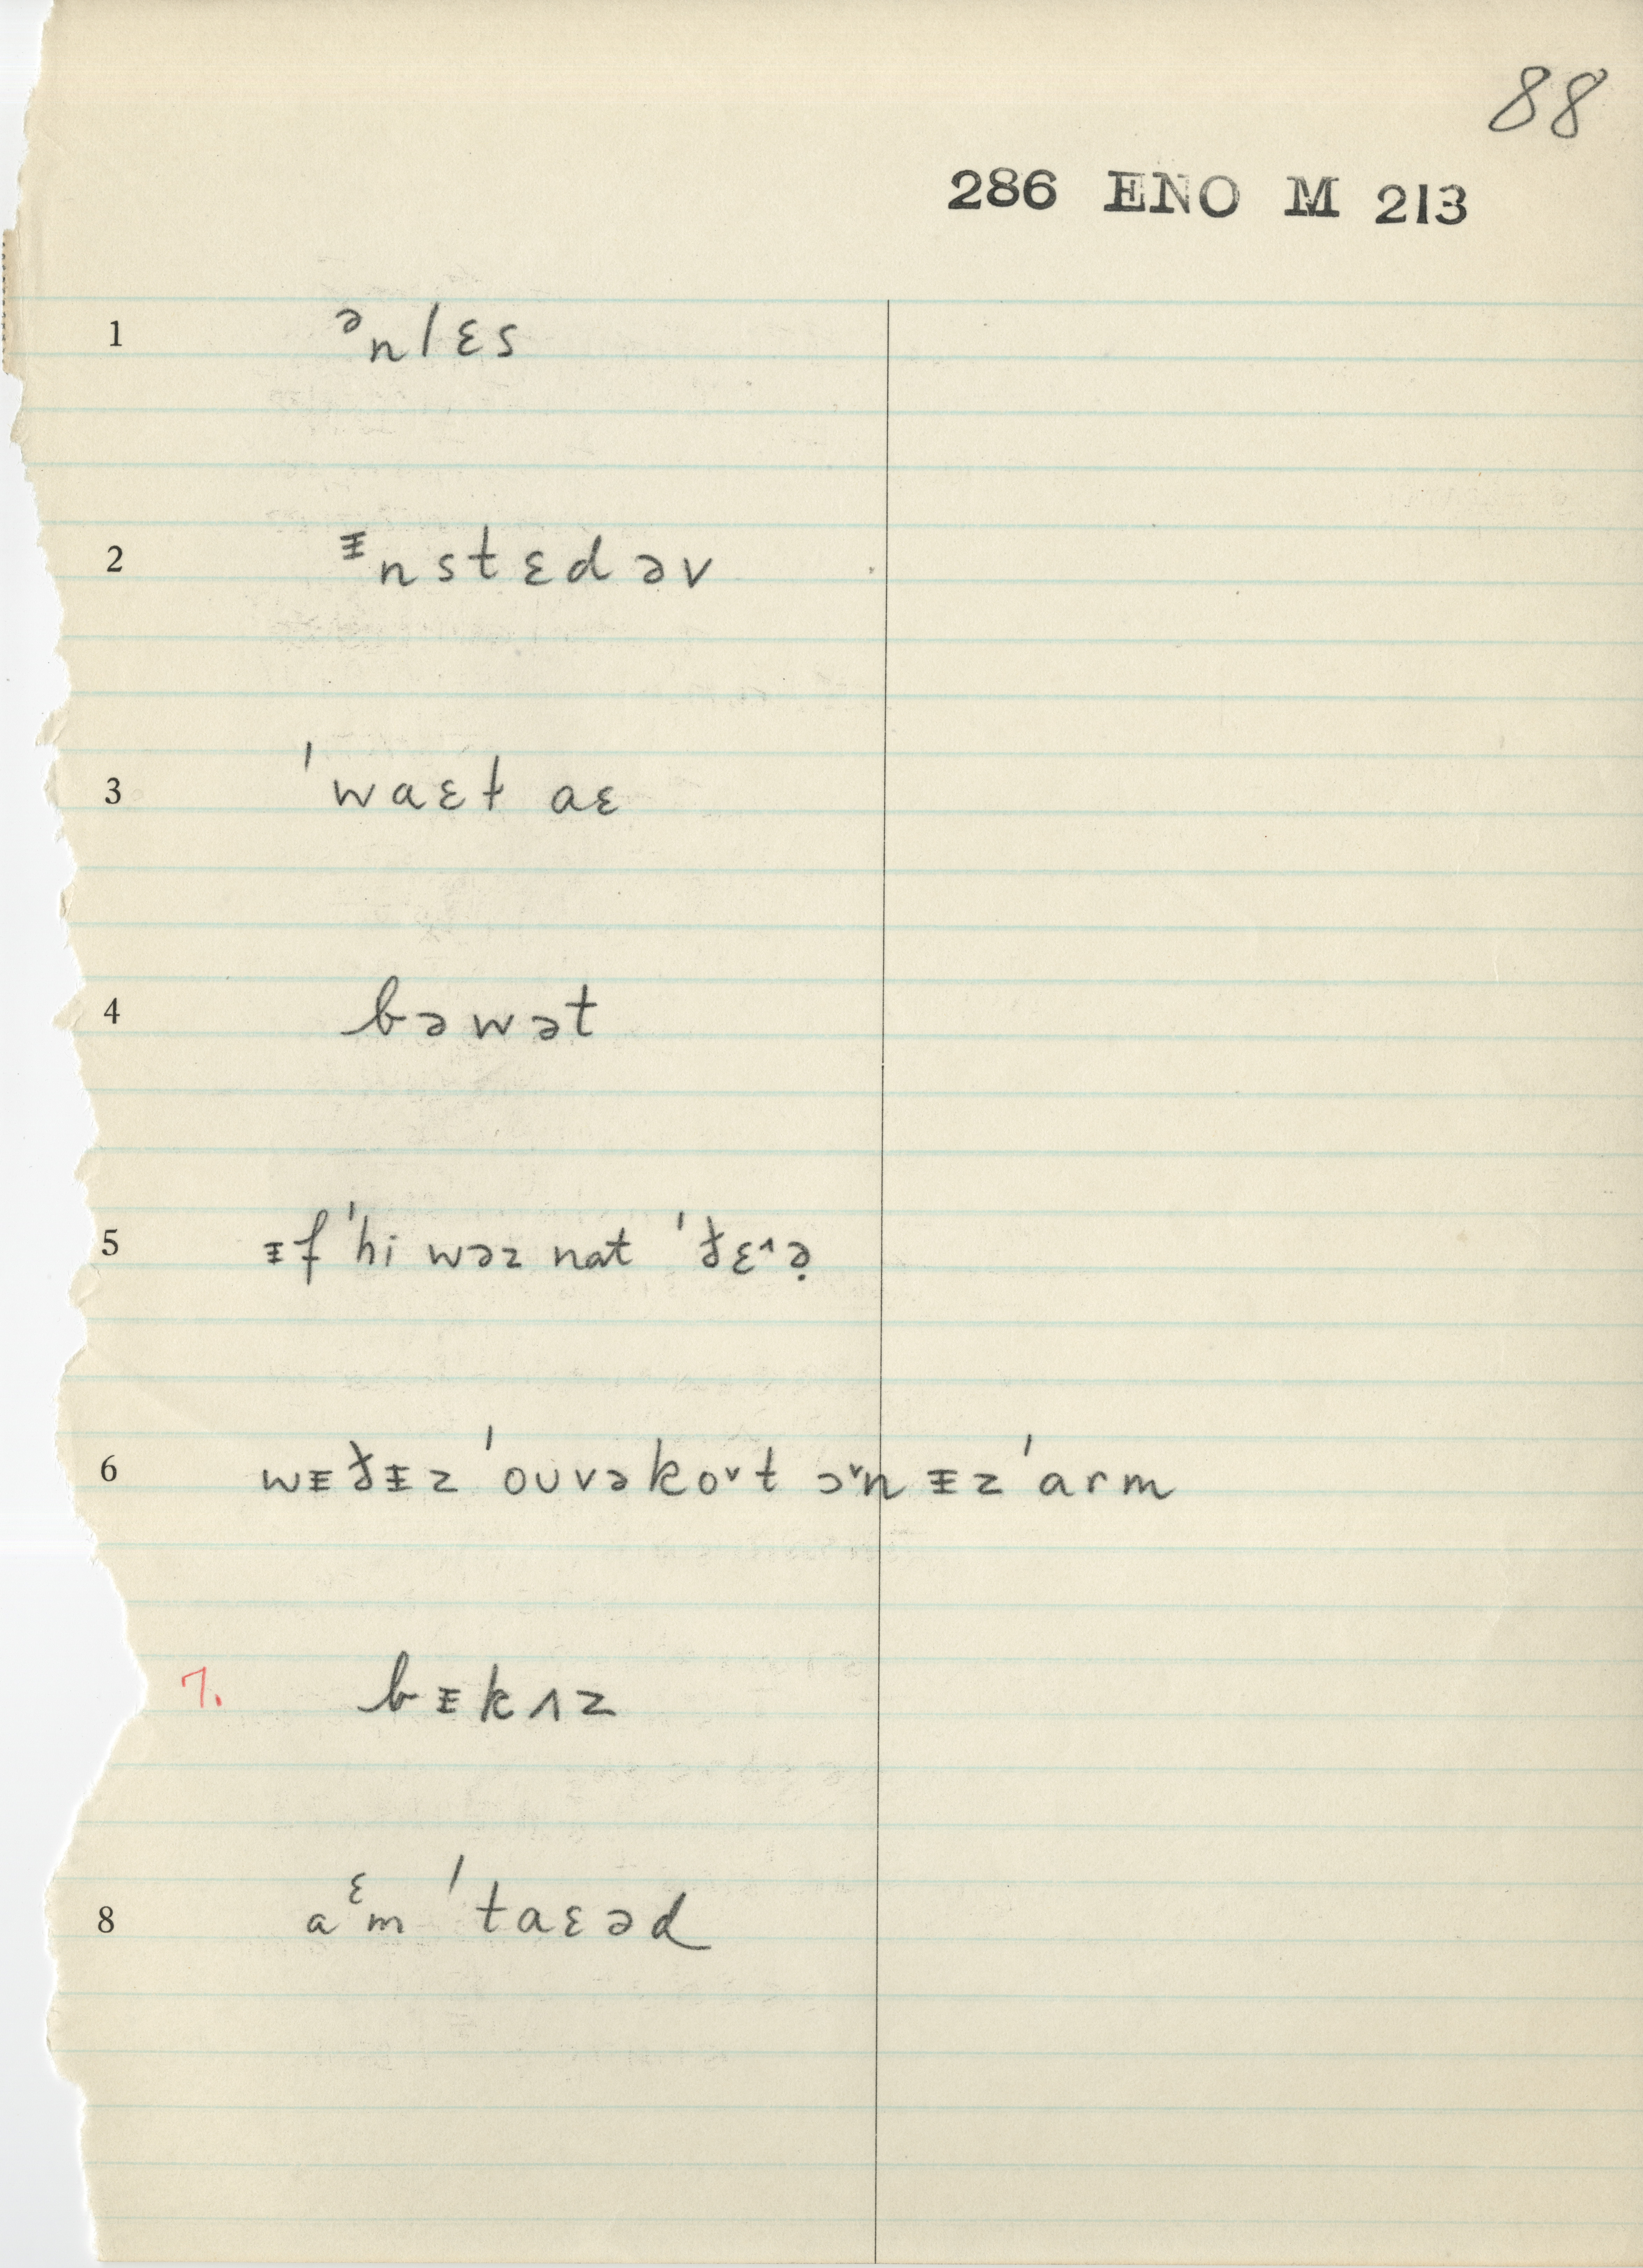 88
286 ENO M 213
1 ᵊnlɛs
2 ᵻnstɛd əv
3 ˈwaɛt aɛ
4 bəwət
5 ᵻf ˈhi wəz nat ˈðɛ˄ə̣
6 wᵻðᵻz ˈoʊvəko˅t ɔ˅n ᵻz ˈarm
7. bᵻkʌz
8 aᵋm ˈtaɛəd